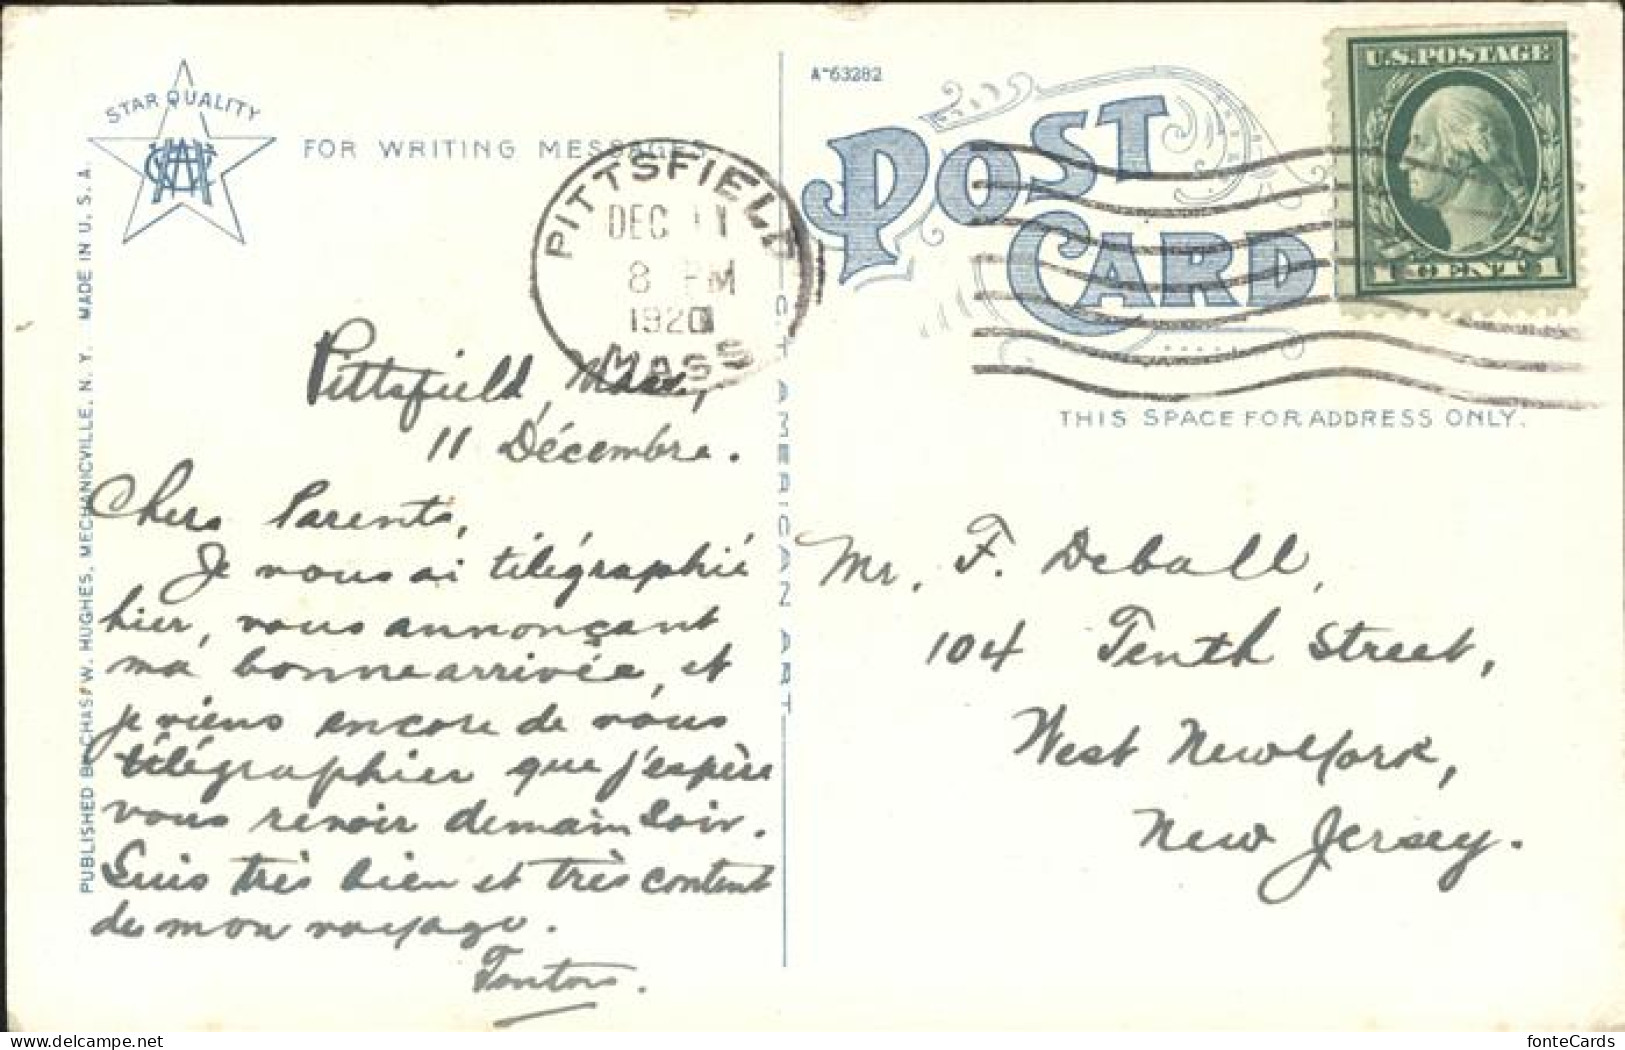 STAR QUALITY
FOR WRITING MESSAGES
PITTSFIELD
DEC 11
8 PM
1920
MASS
Pittsfield, Mass,
11 Décembre.
Chers Parents,
Je vous ai télégraphié
hier, vous annonçant
ma bonne arrivée, et
je viens encore de vous
télégraphier que j'espère
vous revoir demain soir.
Suis très bien et très content
de mon voyage.
PUBLISHED BY CHAS. W. HUGHES, MECHANICVILLE, N. Y. MADE IN U. S. A.
C.T. AMERICAN ART
A-63282
POST
CARD
U.S. POSTAGE
1 CENT 1
THIS SPACE FOR ADDRESS ONLY.
Mr. F. Deball,
104 Tenth Street,
West New York,
New Jersey.
delcampe.net
fonteCards